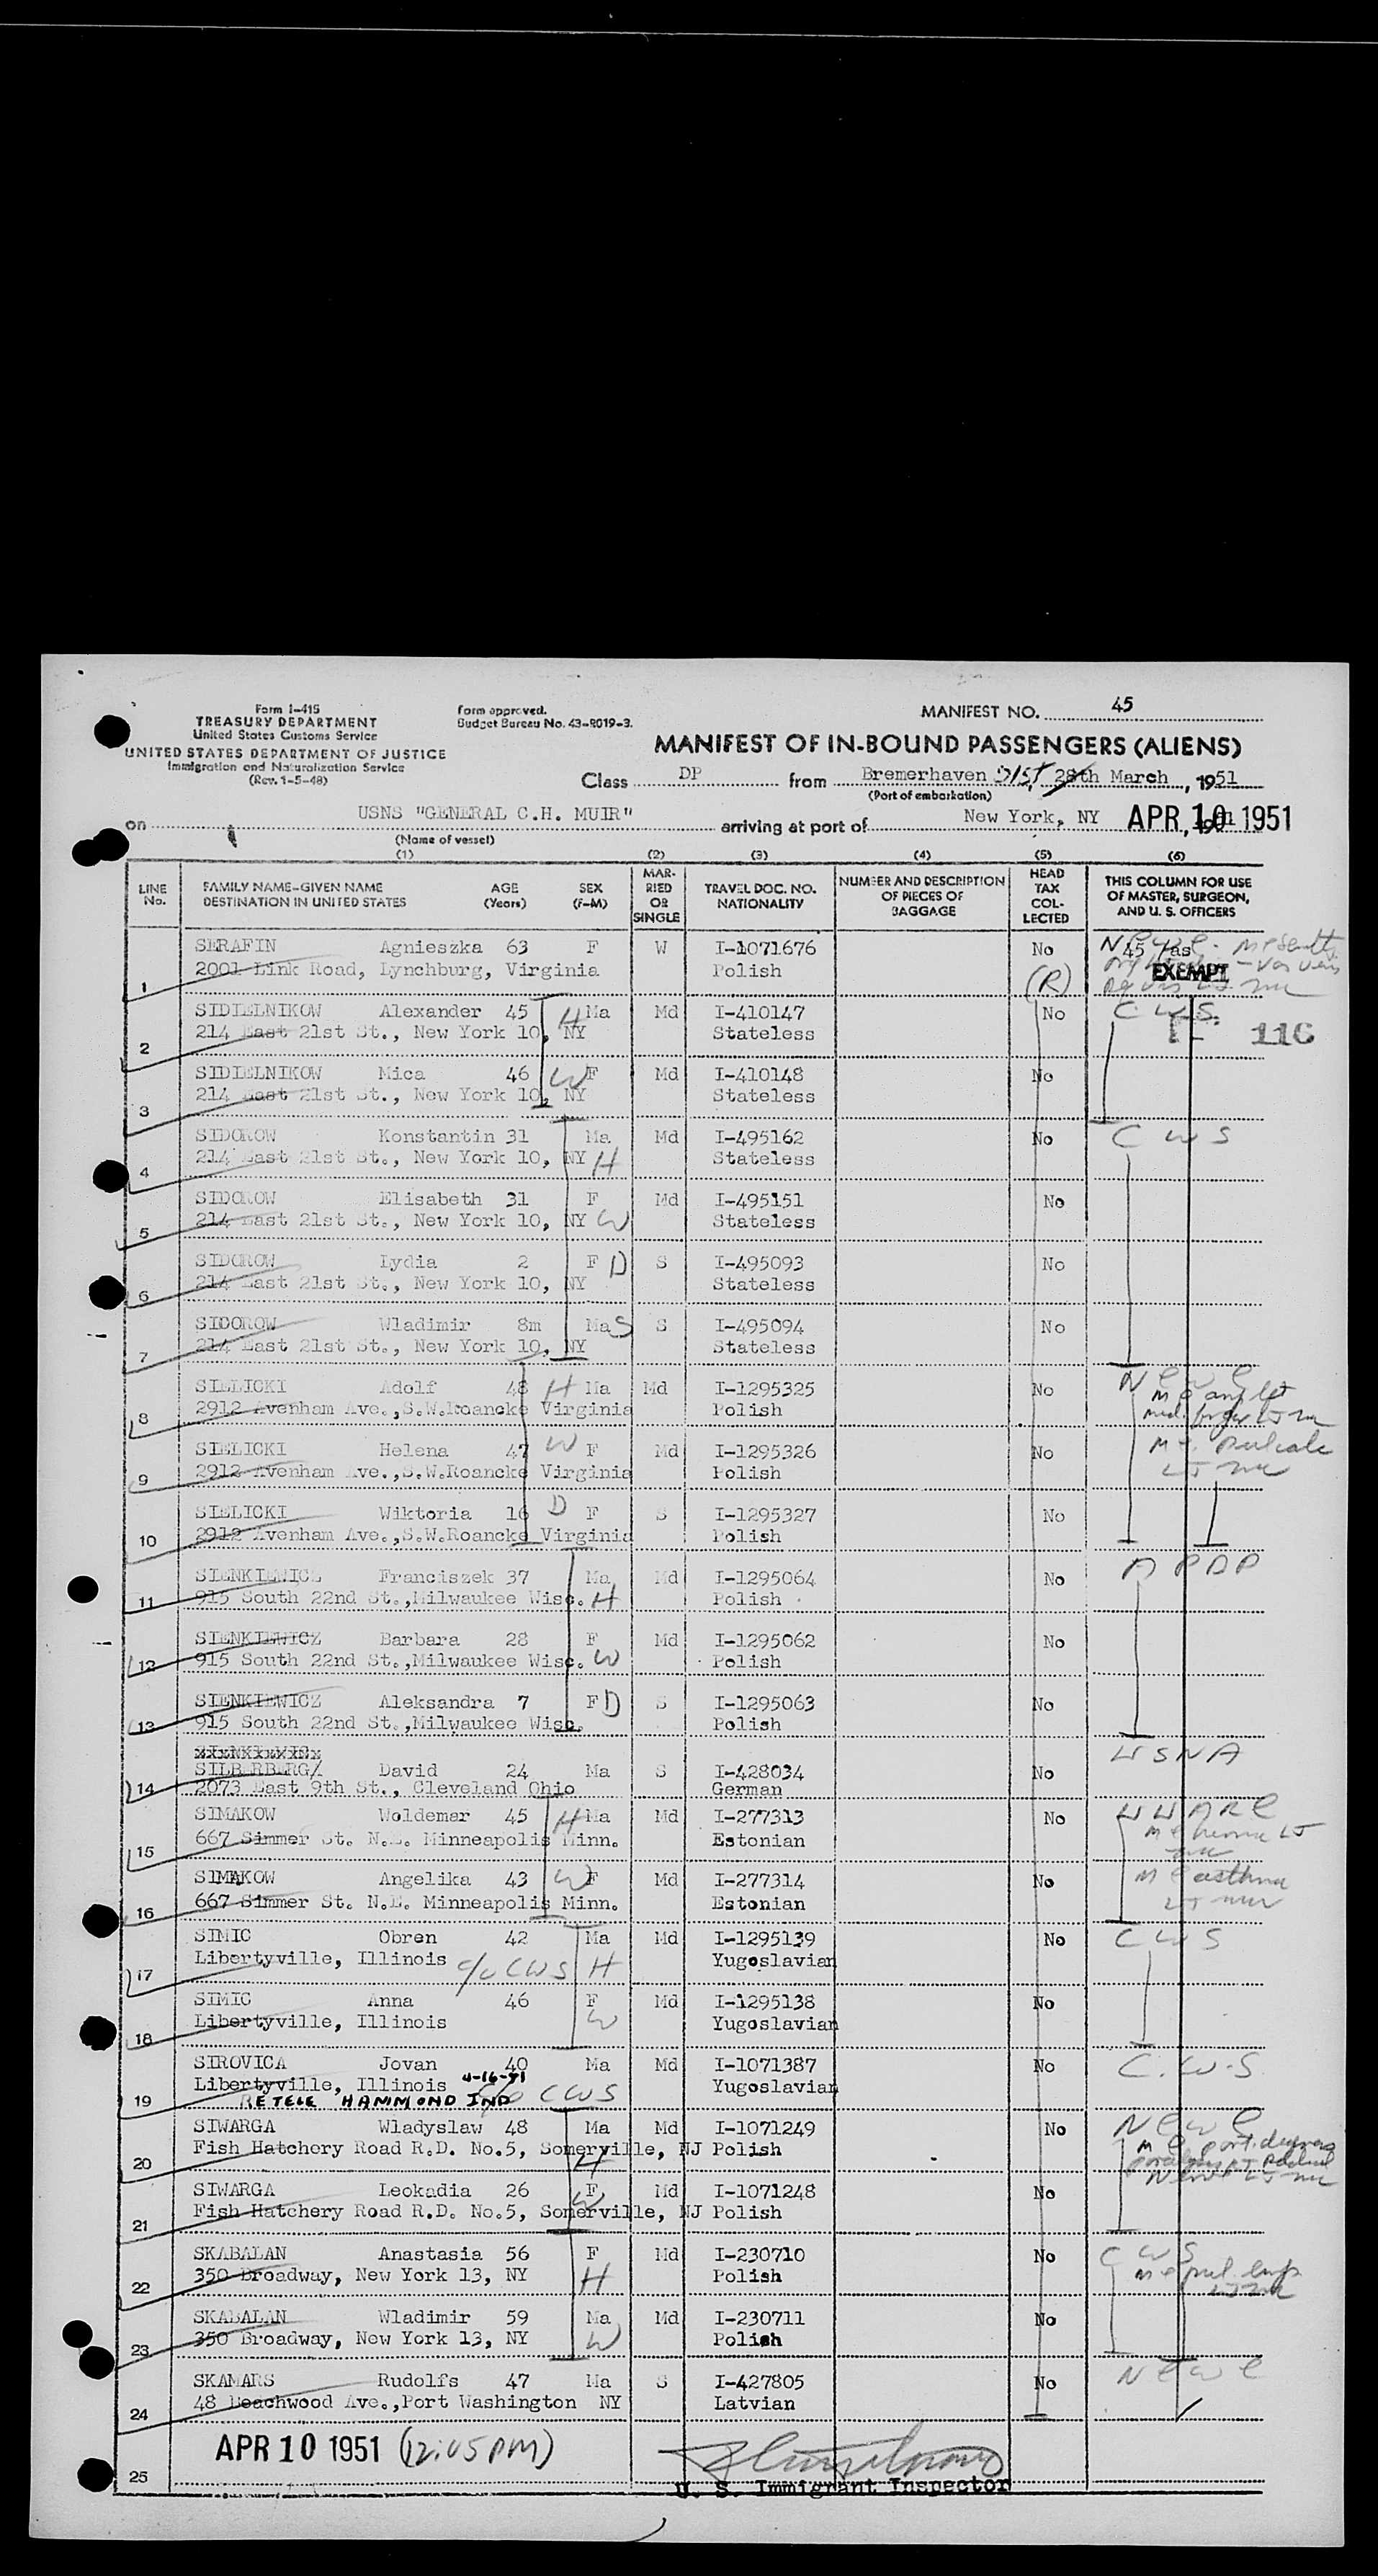 Form I-415
TREASURY DEPARTMENT
United States Customs Service
UNITED STATES DEPARTMENT OF JUSTICE
Immigration and Naturalization Service
(Rev. 1-5-48)
Form approved.
Budget Bureau No. 43-R019-3.
MANIFEST NO. 45
MANIFEST OF IN-BOUND PASSENGERS (ALIENS)
Class DP from Bremerhaven 31st 28th March, 1951
(Port of embarkation)
on USNS "GENERAL C.H. MUIR" arriving at port of New York, NY APR 10 1951
(Name of vessel)
(1) (2) (3) (4) (5) (6)
LINE No.
FAMILY NAME-GIVEN NAME
DESTINATION IN UNITED STATES
AGE (Years)
SEX (F-M)
MARRIED OR SINGLE
TRAVEL DOC. NO. NATIONALITY
NUMBER AND DESCRIPTION OF PIECES OF BAGGAGE
HEAD TAX COLLECTED
THIS COLUMN FOR USE OF MASTER, SURGEON, AND U. S. OFFICERS
1 SERAFIN Agnieszka 63 F W I-1071676 No 45 Pas
2001 Link Road, Lynchburg, Virginia Polish (R) EXEMPT
2 SIDIELNIKOW Alexander 45 H Ma Md I-410147 No C.W.S.
214 East 21st St., New York 10, NY Stateless 116
3 SIDIELNIKOW Mica 46 W F Md I-410148 No
214 East 21st St., New York 10, NY Stateless
4 SIDOROW Konstantin 31 Ma Md I-495162 No C W S
214 East 21st St., New York 10, NY H Stateless
5 SIDOROW Elisabeth 31 F Md I-495151 No
214 East 21st St., New York 10, NY W Stateless
6 SIDOROW Lydia 2 F D S I-495093 No
214 East 21st St., New York 10, NY Stateless
7 SIDOROW Wladimir 8m Ma S S I-495094 No
214 East 21st St., New York 10, NY Stateless
8 SIELICKI Adolf 48 H Ma Md I-1295325 No
2912 Avenham Ave.,S.W.Roancke Virginia Polish
9 SIELICKI Helena 47 W F Md I-1295326 No
2912 Avenham Ave.,S.W.Roancke Virginia Polish
10 SIELICKI Wiktoria 16 D F S I-1295327 No
2912 Avenham Ave.,S.W.Roancke Virginia Polish
11 SIENKIEWICZ Franciszek 37 Ma Md I-1295064 No
915 South 22nd St.,Milwaukee Wisc. H Polish
12 SIENKIEWICZ Barbara 28 F Md I-1295062 No
915 South 22nd St.,Milwaukee Wisc. W Polish
13 SIENKIEWICZ Aleksandra 7 F D S I-1295063 No
915 South 22nd St.,Milwaukee Wisc. Polish
14 SILBERBERG/ David 24 Ma S I-428034 No USNA
2073 East 9th St., Cleveland Ohio German
15 SIMAKOW Woldemar 45 H Ma Md I-277313 No
667 Simmer St. N.E. Minneapolis Minn. Estonian
16 SIMAKOW Angelika 43 W F Md I-277314 No asthma
667 Simmer St. N.E. Minneapolis Minn. Estonian
17 SIMIC Obren 42 Ma Md I-1295139 No C W S
Libertyville, Illinois c/o CWS H Yugoslavian
18 SIMIC Anna 46 F Md I-1295138 No
Libertyville, Illinois W Yugoslavian
19 SIROVICA Jovan 40 Ma Md I-1071387 No C.W.S.
Libertyville, Illinois 4-16-51 c/o CWS Yugoslavian
RE TELE HAMMOND IND
20 SIWARGA Wladyslaw 48 Ma Md I-1071249 No
Fish Hatchery Road R.D. No.5, Somerville, NJ H Polish
21 SIWARGA Leokadia 26 F Md I-1071248 No
Fish Hatchery Road R.D. No.5, Somerville, NJ W Polish
22 SKABALAN Anastasia 56 F Md I-230710 No C W S
350 Broadway, New York 13, NY H Polish
23 SKABALAN Wladimir 59 Ma Md I-230711 No
350 Broadway, New York 13, NY W Polish
24 SKAMARS Rudolfs 47 Ma S I-427805 No
48 Beachwood Ave.,Port Washington NY Latvian
25 APR 10 1951 (12:05PM)
U. S. Immigrant Inspector